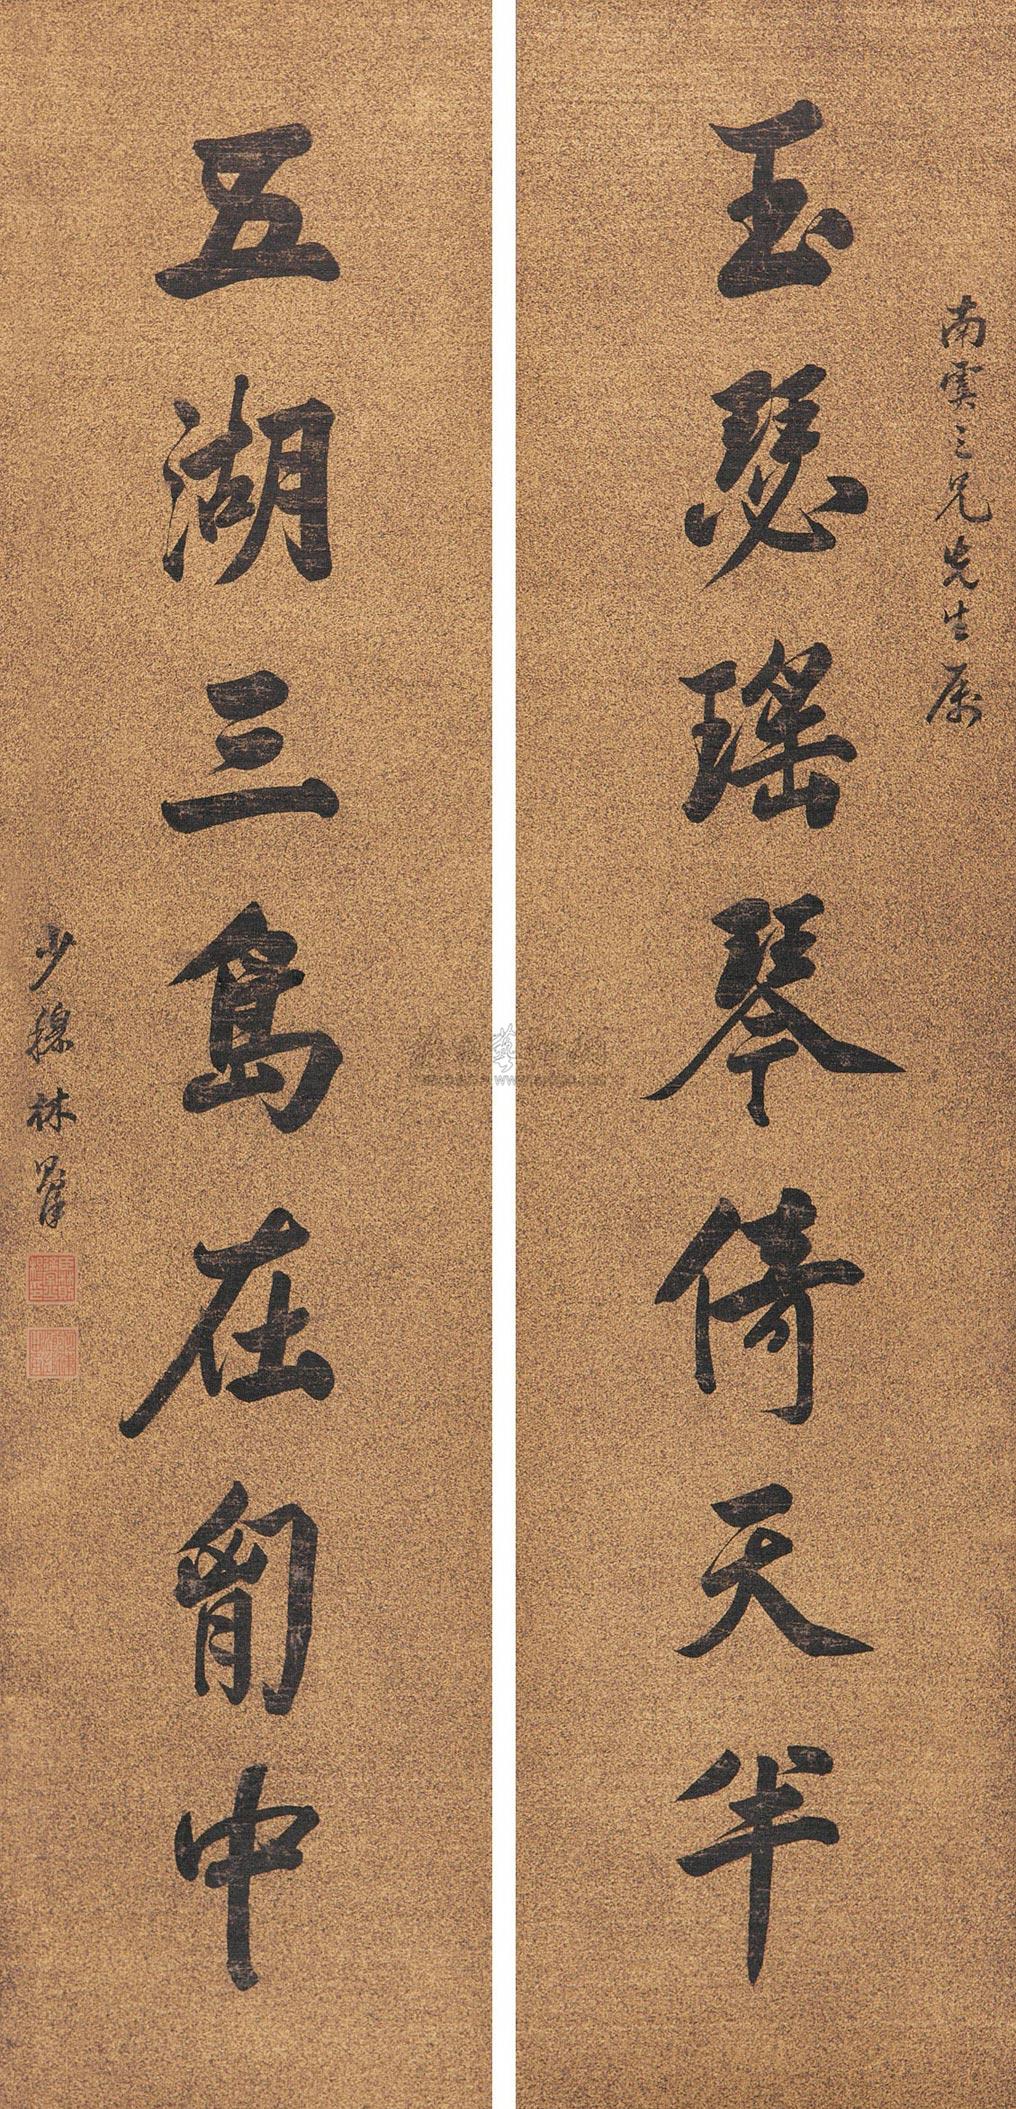 南雲三兄先生属
玉瑟瑤琴倚天半
五湖三島在匈中
少穆林則徐